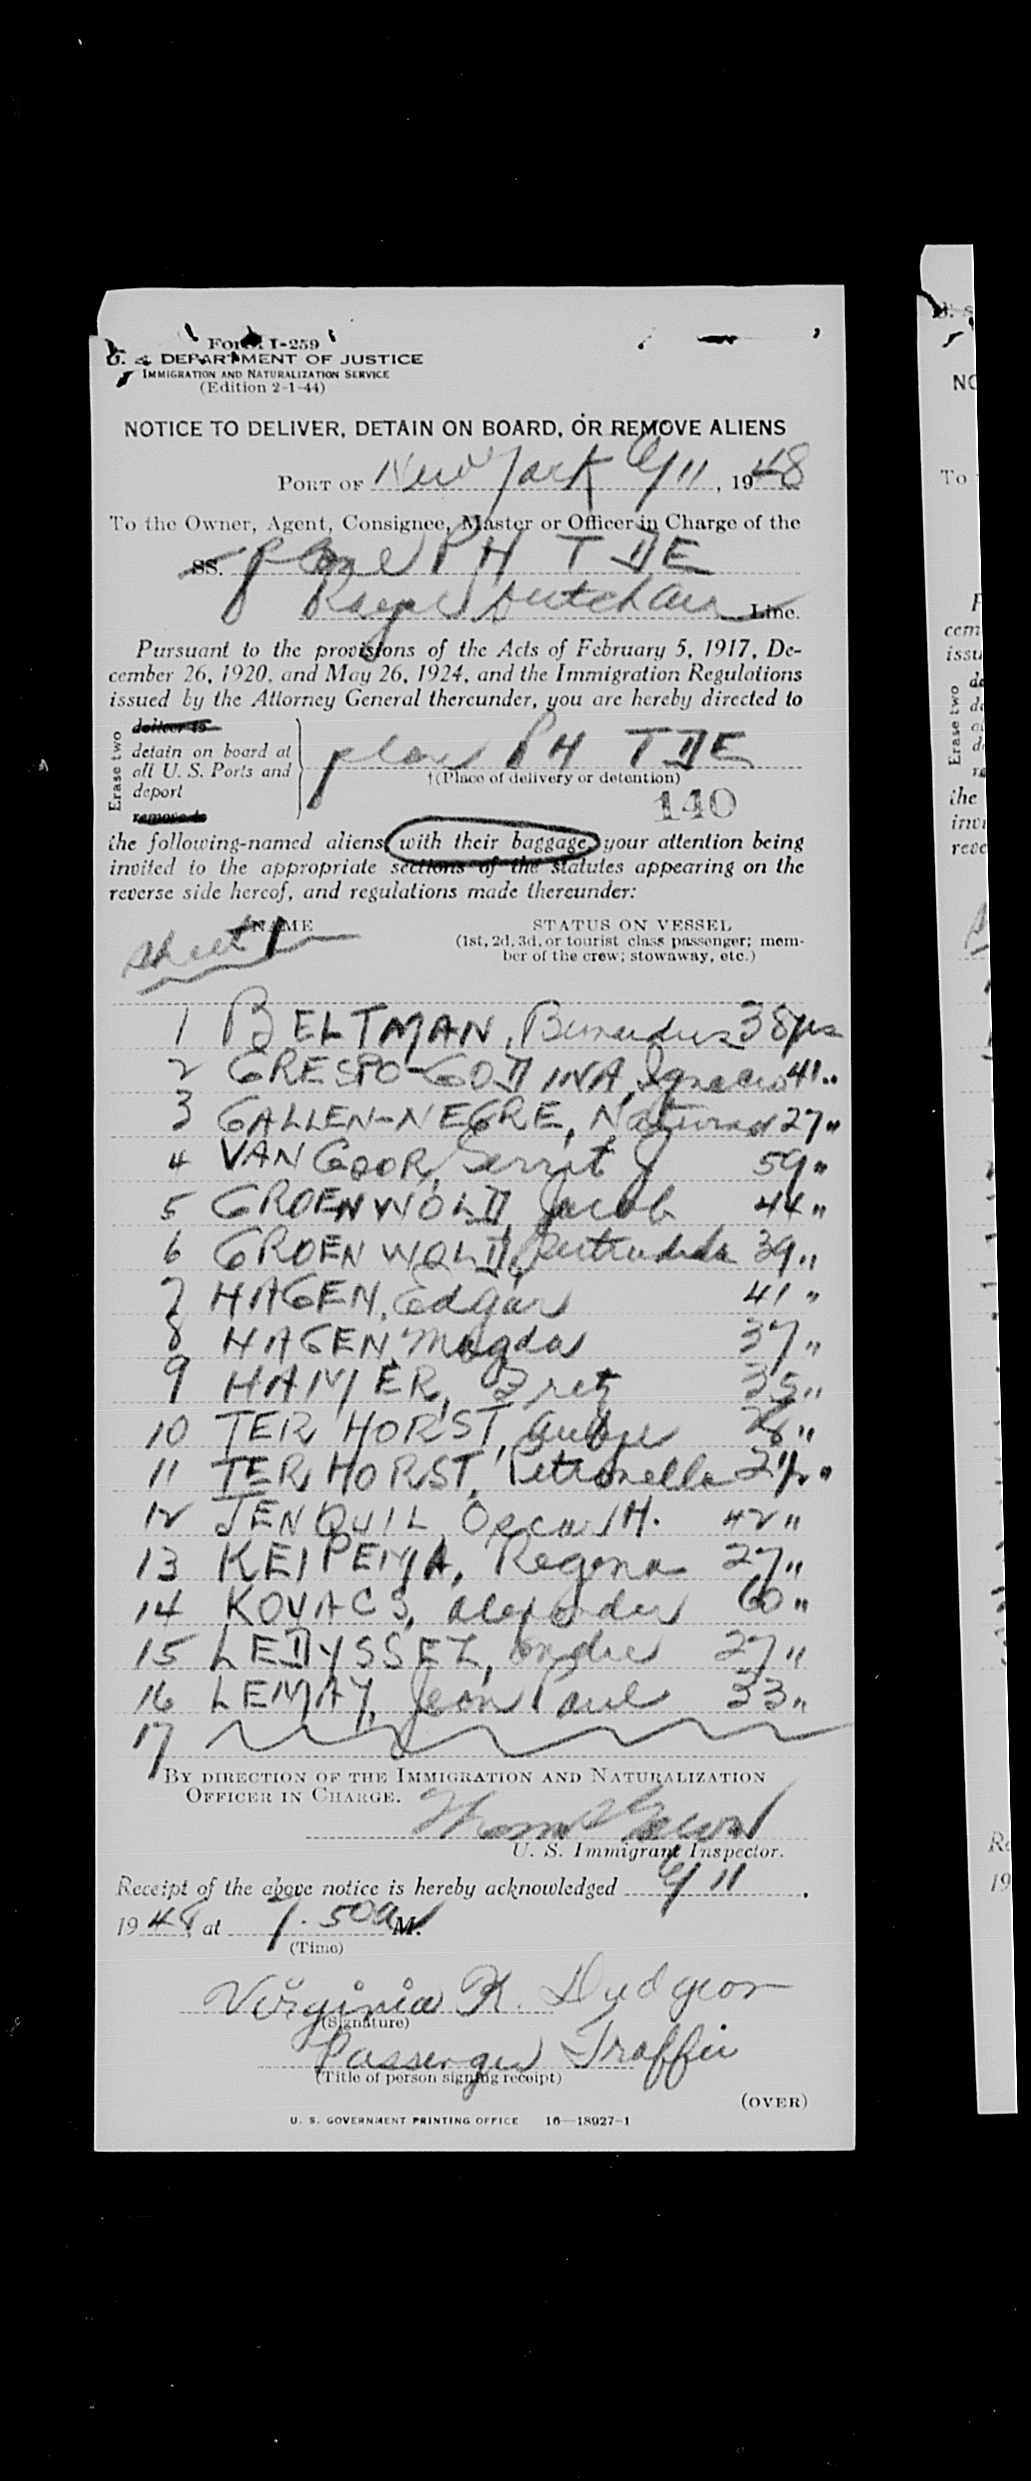 Form I-259
U. S. DEPARTMENT OF JUSTICE
IMMIGRATION AND NATURALIZATION SERVICE
(Edition 2-1-44)
NOTICE TO DELIVER, DETAIN ON BOARD, OR REMOVE ALIENS
PORT OF New York 6/11, 1948
To the Owner, Agent, Consignee, Master or Officer in Charge of the
SS. plane PH TDE
Dutch Air Line.
Pursuant to the provisions of the Acts of February 5, 1917, De-
cember 26, 1920, and May 26, 1924, and the Immigration Regulations
issued by the Attorney General thereunder, you are hereby directed to
Erase two
deliver to
detain on board at
all U. S. Ports and
deport
remove to
plane PH TDE
†(Place of delivery or detention)
140
the following-named aliens with their baggage, your attention being
invited to the appropriate sections of the statutes appearing on the
reverse side hereof, and regulations made thereunder:
NAME STATUS ON VESSEL
sheet 1 (1st, 2d, 3d, or tourist class passenger; mem-
ber of the crew; stowaway, etc.)
1 BELTMAN, Bernardus 38 yrs
2 CRESPO-GODINA, Ignacio 41 "
3 GALLEN-NEGRE, 27 "
4 VAN GOOR, Gerrit J 59 "
5 GROENWOLD, Jacob 44 "
6 GROENWOLD, 39 "
7 HAGEN, Edgar 41 "
8 HAGEN, Magda 37 "
9 HAMER, Fretz 35 "
10 TER HORST, "
11 TER HORST, Petronella "
12 JENQUIL, Oscar H. 42 "
13 KEIPEMA, Regona 27 "
14 KOVACS, Alexander 60 "
15 LEDYSSEL, Andre 27 "
16 LEMAY, Jean Paul 33 "
17
BY DIRECTION OF THE IMMIGRATION AND NATURALIZATION
OFFICER IN CHARGE.
U. S. Immigrant Inspector.
Receipt of the above notice is hereby acknowledged 6/11,
1948 at 7.50 a M.
(Time)
Virginia K. Dudgeon
(Signature)
Passenger Traffic
(Title of person signing receipt)
(OVER)
U. S. GOVERNMENT PRINTING OFFICE 16—18927-1